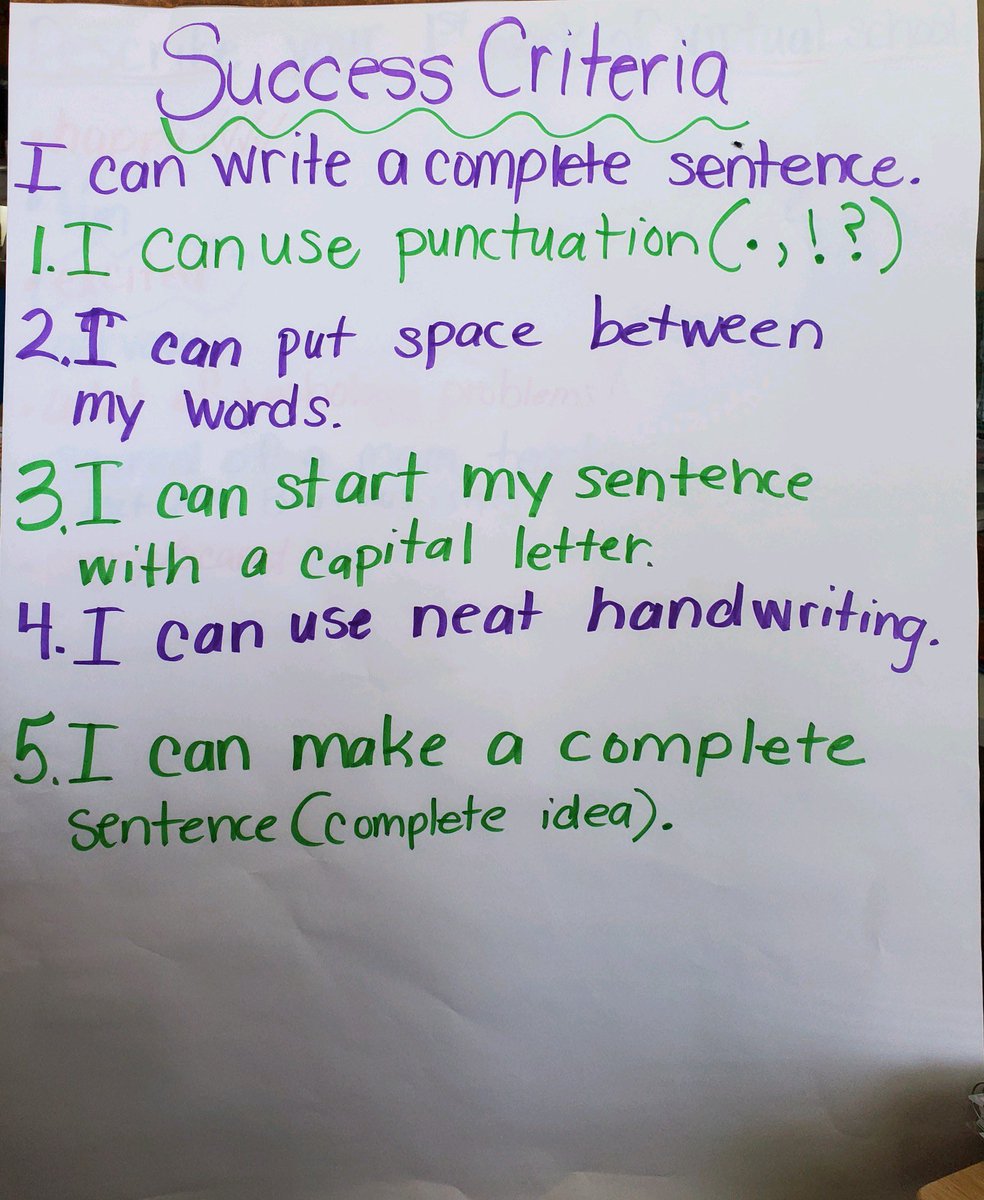 Success Criteria
I can write a complete sentence.
1. I can use punctuation (. , ! ?)
2. I can put space between
my words.
3. I can start my sentence
with a capital letter.
4. I can use neat handwriting.
5. I can make a complete
sentence (complete idea).